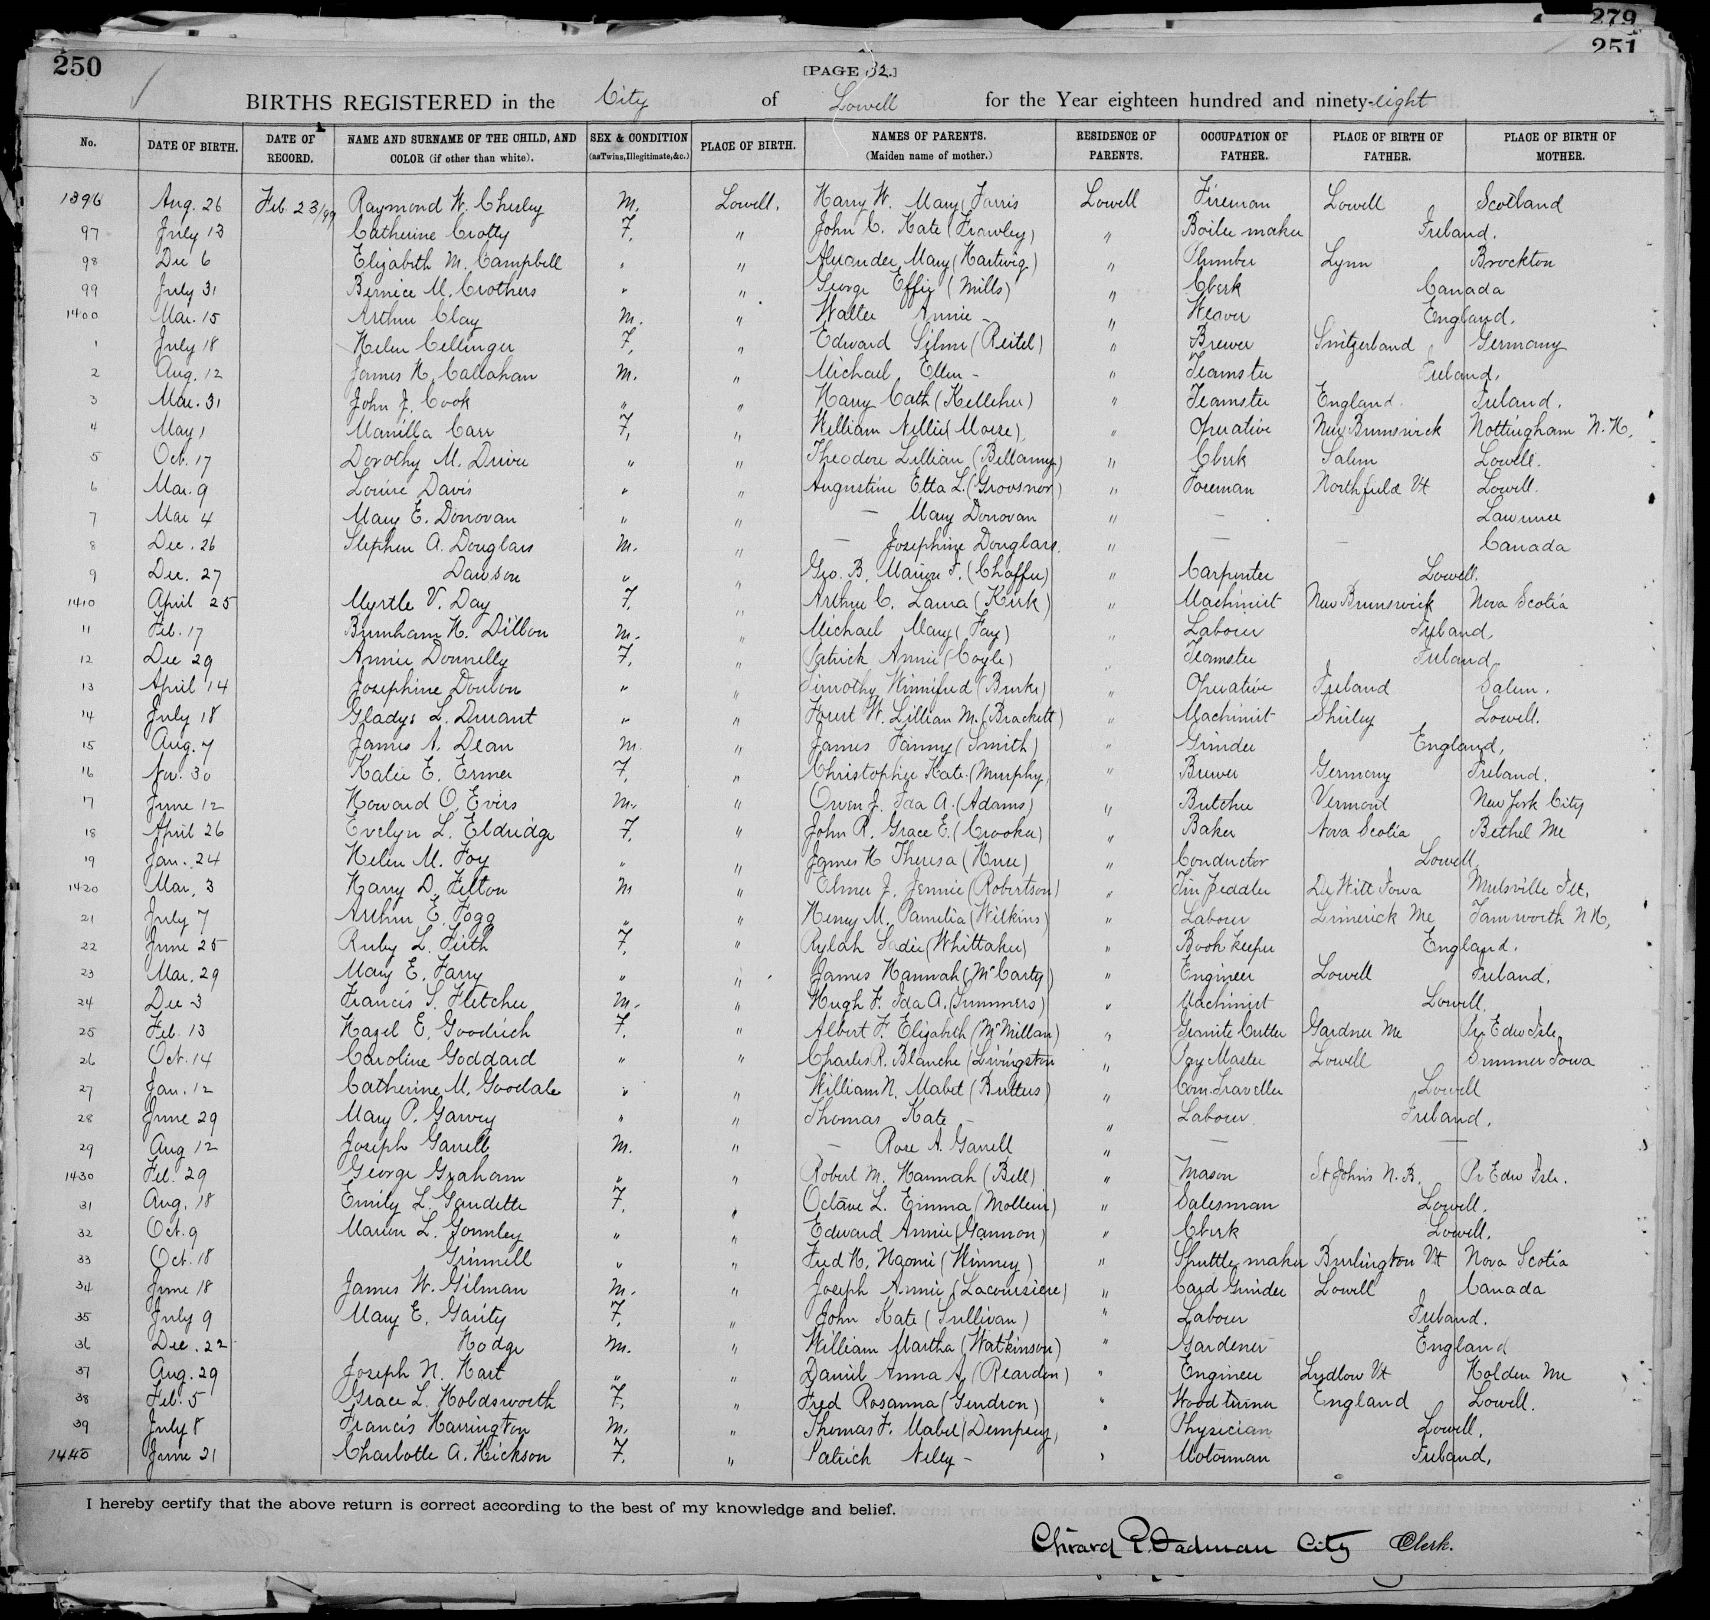 279
251
250
[PAGE 32.]
BIRTHS REGISTERED in the City of Lowell for the Year eighteen hundred and ninety-eight
No. DATE OF BIRTH. DATE OF RECORD. NAME AND SURNAME OF THE CHILD, AND COLOR (if other than white). SEX & CONDITION (as Twins, Illegitimate, &c.) PLACE OF BIRTH. NAMES OF PARENTS. (Maiden name of mother.) RESIDENCE OF PARENTS. OCCUPATION OF FATHER. PLACE OF BIRTH OF FATHER. PLACE OF BIRTH OF MOTHER.
1396 Aug. 26 Feb. 23/99 Raymond W. Chesley M. Lowell. Harry W. Mary (Farris Lowell Fireman Lowell Scotland
97 July 13 Catherine Crotty F. " John C. Kate (Frawley) " Boiler maker Ireland.
98 Dec 6 Elizabeth M. Campbell " " Alexander Mary (Hartwig) " Plumber Lynn Brockton
99 July 31 Bernice M. Crothers " " George Effie (Mills) " Clerk Canada
1400 Mar. 15 Arthur Clay M. " Walter Annie - " Weaver England.
1 July 18 Helen Cellinger F. " Edward Selma (Reitel) " Brewer Switzerland Germany
2 Aug. 12 James H. Callahan M. " Michael Ellen - " Teamster Ireland.
3 Mar. 31 John J. Cook " " Harry Cath (Kelleher) " Teamster England. Ireland.
4 May 1 Manilla Carr F. " William Nellie (Morse) " Operative New Brunswick Nottingham N.H.
5 Oct. 17 Dorothy M. Driver " " Theodore Lillian (Bellamy) " Clerk Salem Lowell.
6 Mar. 9 Louise Davis " " Augustine Etta L. (Grovsnor) " Foreman Northfield Vt Lowell.
7 Mar 4 Mary E. Donovan " " - Mary Donovan " - - Lawrence
8 Dec. 26 Stephen A. Douglass M. " - Josephine Douglass. " - - Canada
9 Dec. 27 Dawson " " Geo. B. Marion F. (Chaffee) " Carpenter Lowell.
1410 April 25 Myrtle V. Day F. " Arthur C. Laura (Kirk) " Machinist New Brunswick Nova Scotia
11 Feb. 17 Burnham H. Dillon M. " Michael Mary (Fay) " Laborer Ireland.
12 Dec 29 Annie Donnelly F. " Patrick Annie (Coyle) " Teamster Ireland.
13 April 14 Josephine Donlon " " Timothy Winnifred (Burke) " Operative Ireland Salem.
14 July 18 Gladys L. Durant " " Forest W. Lillian M. (Brackett) " Machinist Shirley Lowell.
15 Aug. 7 James A. Dean M. " James Fanny (Smith) " Grinder England.
16 Nov. 30 Katie E. Ermer F. " Christopher Kate (Murphy. " Brewer Germany Ireland.
17 June 12 Howard O. Evirs M. " Owen J. Ida A. (Adams) " Butcher Vermont New York City
18 April 26 Evelyn L. Eldridge F. " John R. Grace E. (Crooker) " Baker Nova Scotia Bethel Me
19 Jan. 24 Helen M. Foy " " James H Theresa (Knee) " Conductor Lowell
1420 Mar. 3 Harry D. Felton M " Elmer J. Jennie (Robertson) " Tin peddler De Witt Iowa
21 July 7 Arthur E. Fogg " " Henry M. Pamelia (Wilkins) " Laborer Limerick Me Tamworth N.H.
22 June 25 Ruby L. Firth F. " Rylah Sadie (Whittaker) " Book keeper England.
23 Mar. 29 Mary E. Farry " " James Hannah (McCarty) " Engineer Lowell Ireland.
24 Dec 3 Francis S. Fletcher M. " Hugh F. Ida A. (Summers) " Machinist Lowell.
25 Feb. 13 Hazel E. Goodrich F. " Albert F. Elizabeth (McMillan) " Granite Cutter Gardner Me Pr Edw Isle.
26 Oct. 14 Caroline Goddard " " Charles R. Blanche (Livingston " Pay Master Lowell Sumner Iowa
27 Jan. 12 Catherine M. Goodale " " William N. Mabel (Butters) " Com. Traveller Lowell
28 June 29 Mary P. Garvey " " Thomas Kate - " Laborer. Ireland.
29 Aug 12 Joseph Garrell M. " - Rose A. Garrell " - -
1430 Feb. 29 George Graham " " Robert M. Hannah (Bell) " Mason St Johns N.B. Pr Edw Isle.
31 Aug. 18 Emily L. Gaudette F. " Octave L. Emma (Molleur) " Salesman Lowell.
32 Oct. 9 Marion L. Gormley " " Edward Annie (Gannon) " Clerk Lowell.
33 Oct. 18 Grinnell " " Fred H. Naomi (Winney) " Shuttle maker Burlington Vt Nova Scotia
34 June 18 James W. Gilman M. " Joseph Annie (Lacoursiere) " Card Grinder Lowell Canada
35 July 9 Mary E. Garity F. " John Kate (Sullivan) " Laborer Ireland.
36 Dec. 22 Hodge M. " William Martha (Watkinson) " Gardener England
37 Aug. 29 Joseph N. Hart " " Daniel Anna A. (Reardon) " Engineer Ludlow Vt Holden Me
38 Feb. 5 Grace L. Holdsworth F. " Fred Rosanna (Gendron) " Wood turner England Lowell.
39 July 8 Francis Harrington M. " Thomas F. Mabel (Dempsey, " Physician Lowell.
1440 June 21 Charlotte A. Hickson F. " Patrick Neley - " Motorman Ireland.
I hereby certify that the above return is correct according to the best of my knowledge and belief.
Girard P. Dadman City Clerk.